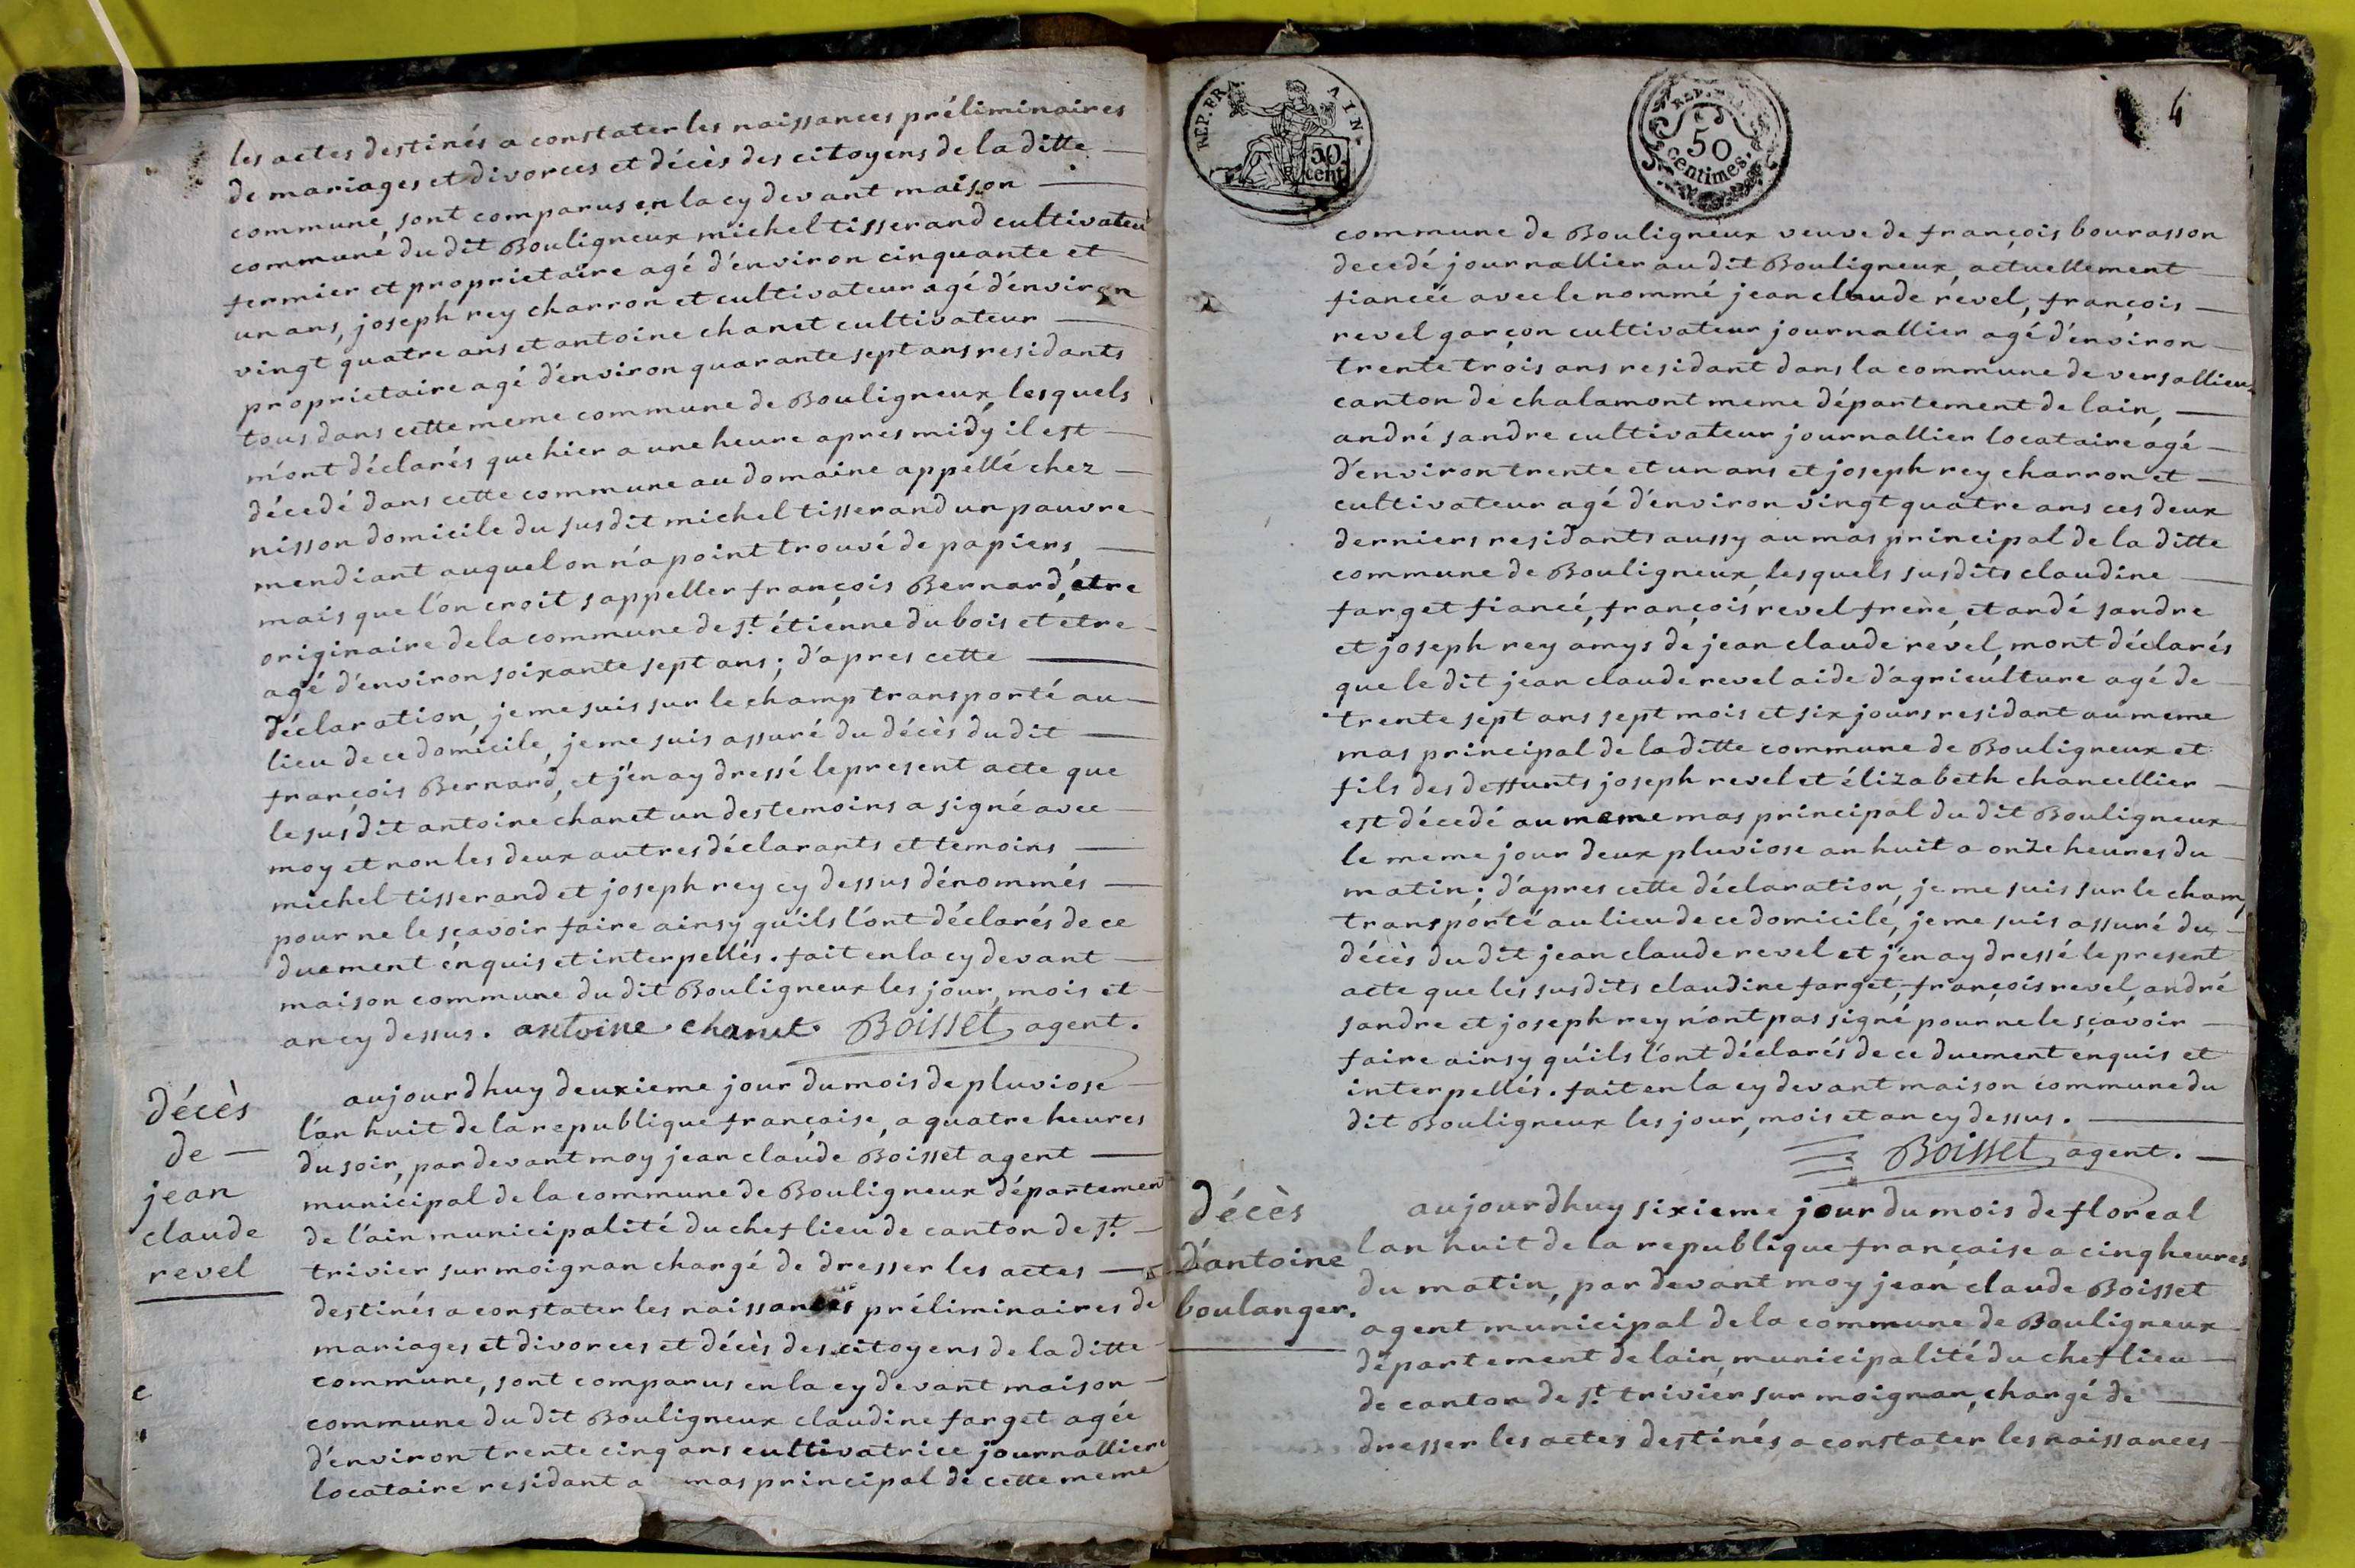 les actes destinés a constater les naissances préliminaires
de mariages et divorces et décès des citoyens de la ditte
commune, sont comparus en la cy devant maison
commune du dit Bouligneux michel tisserand cultivateur
fermier et proprietaire agé d'environ cinquante et
un ans, joseph rey charron et cultivateur agé d'environ
vingt quatre ans et antoine chanet cultivateur
proprietaire agé d'environ quarante sept ans residants
tous dans cette meme commune de Bouligneux, lesquels
m'ont déclarés que hier a une heure apres midy il est
décedé dans cette commune au domaine appellé chez
nisson domicile du susdit michel tisserand un pauvre
mendiant auquel on n'a point trouvé de papiers,
mais que l'on croit s'appeller françois Bernard, etre
originaire de la commune de st. étienne du bois et etre
agé d'environ soixante sept ans; d'apres cette
déclaration, je me suis sur le champ transporté au
lieu de ce domicile, je me suis assuré du décès du dit
françois Bernard, et j'en ay dressé le present acte que
le susdit antoine chanet un des temoins a signé avec
moy et non les deux autres déclarants et temoins
michel tisserand et joseph rey cy dessus dénommés
pour ne le sçavoir faire ainsy qu'ils l'ont déclarés de ce
duement enquis et interpellés. fait en la cy devant
maison commune du dit Bouligneux les jour, mois et
an cy dessus. antoine chanet. Boisset, agent.
décès
de
jean
claude
revel
aujourdhuy deuxieme jour du mois de pluviose
l'an huit de la republique française, a quatre heures
du soir, par devant moy jean claude Boisset agent
municipal de la commune de Bouligneux département
de l'ain municipalité du chef lieu de canton de st.
trivier sur moignan chargé de dresser les actes
destinés a constater les naissances préliminaires de
mariages et divorces et décès des citoyens de la ditte
commune, sont comparus en la cy devant maison
commune du dit Bouligneux claudine farget agée
d'environ trente cinq ans cultivatrice journalliere
locataire residant a mas principal de cette meme
REP. FRA
50 cent
50
centimes.
4
commune de Bouligneux veuve de françois bourasson
decedé journallier au dit Bouligneux, actuellement
fiancée avec le nommé jean claude revel, françois
revel garçon cultivateur journallier agé d'environ
trente trois ans residant dans la commune de versallieux
canton de chalamont meme département de lain,
andré sandre cultivateur journallier locataire agé
d'environ trente et un ans et joseph rey charron et
cultivateur agé d'environ vingt quatre ans ces deux
derniers residants aussy au mas principal de la ditte
commune de Bouligneux, lesquels susdits claudine
farget fiancé, françois revel frere, et andé sandre
et joseph rey amys de jean claude revel, mont déclarés
que le dit jean claude revel aide d'agriculture agé de
trente sept ans sept mois et six jours residant au meme
mas principal de la ditte commune de Bouligneux et
fils des deffunts joseph revel et élizabeth chancellier
est décedé au meme mas principal du dit Bouligneux
le meme jour deux pluviose an huit a onze heures du
matin; d'apres cette déclaration, je me suis sur le champ
transporté au lieu de ce domicile, je me suis assuré du
décès du dit jean claude revel et j'en ay dressé le present
acte que les susdits claudine farget, françois revel, andré
sandre et joseph rey n'ont pas signé pour ne le sçavoir
faire ainsy qu'ils l'ont déclarés de ce duement enquis et
interpellés. fait en la cy devant maison commune du
dit Bouligneux les jour, mois et an cy dessus.
Boisset, agent.
décès
d'antoine
boulanger.
aujourdhuy sixieme jour du mois de floreal
lan huit de la republique française a cinq heures
du matin, par devant moy jean claude Boisset
agent municipal de la commune de Bouligneux
département de lain, municipalité du chef lieu
de canton de st. trivier sur moignan, chargé de
dresser les actes destinés a constater les naissances